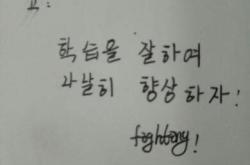 고:
학습을 잘하여
나날히 향상하자!
fighting!